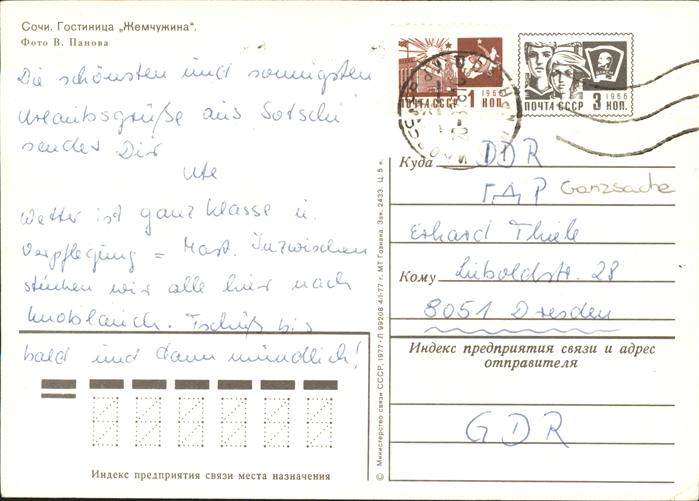 Сочи. Гостиница „Жемчужина“.
Фото В. Панова
Die schönsten und sonnigsten
Urlaubsgrüße aus Sotschi
sendet Dir
Ute
Wetter ist ganz klasse u.
Verpflegung = Mast. Inzwischen
stinken wir alle hier nach
Knoblauch. Tschüß bis
bald und dann mündlich!
Индекс предприятия связи места назначения
© Министерство связи СССР, 1977 г. Л 99208 4/I-77 г. МТ Гознака. Зак. 2433. Ц. 5 к.
1966
ПОЧТА СССР 1 КОП.
1966
ПОЧТА СССР 3 КОП.
Куда DDR
ГДР Ganzsache
Erhard Thiele
Кому Liboldstr. 28
8051 Dresden
Индекс предприятия связи и адрес
отправителя
GDR